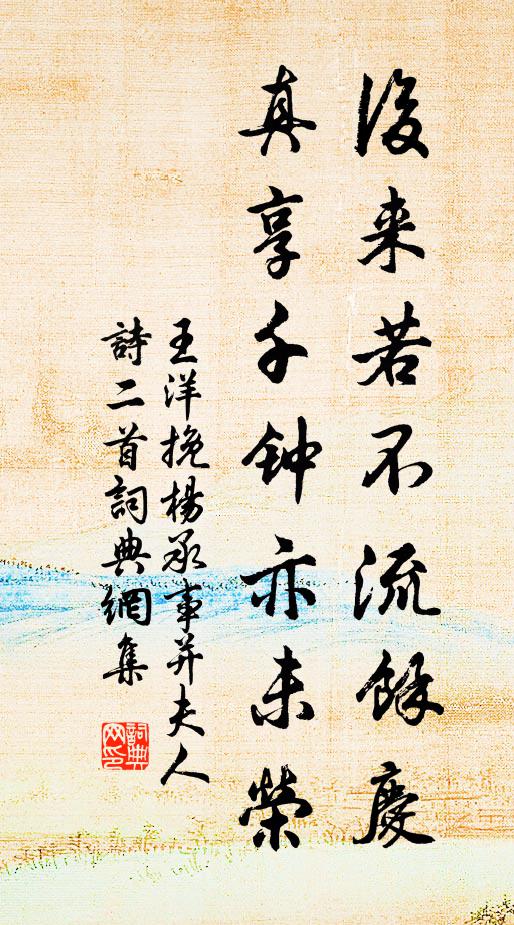 後来若不流餘慶
真享千钟亦未榮
王洋挽楊承事并夫人
詩二首詞典網集
詞典
网印